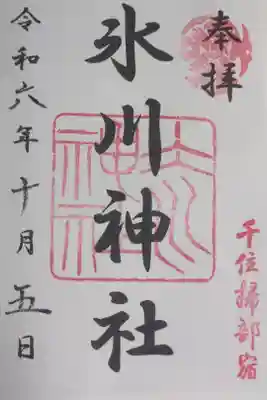 奉拝
氷川神社
千住掃部宿
令和六年十月五日